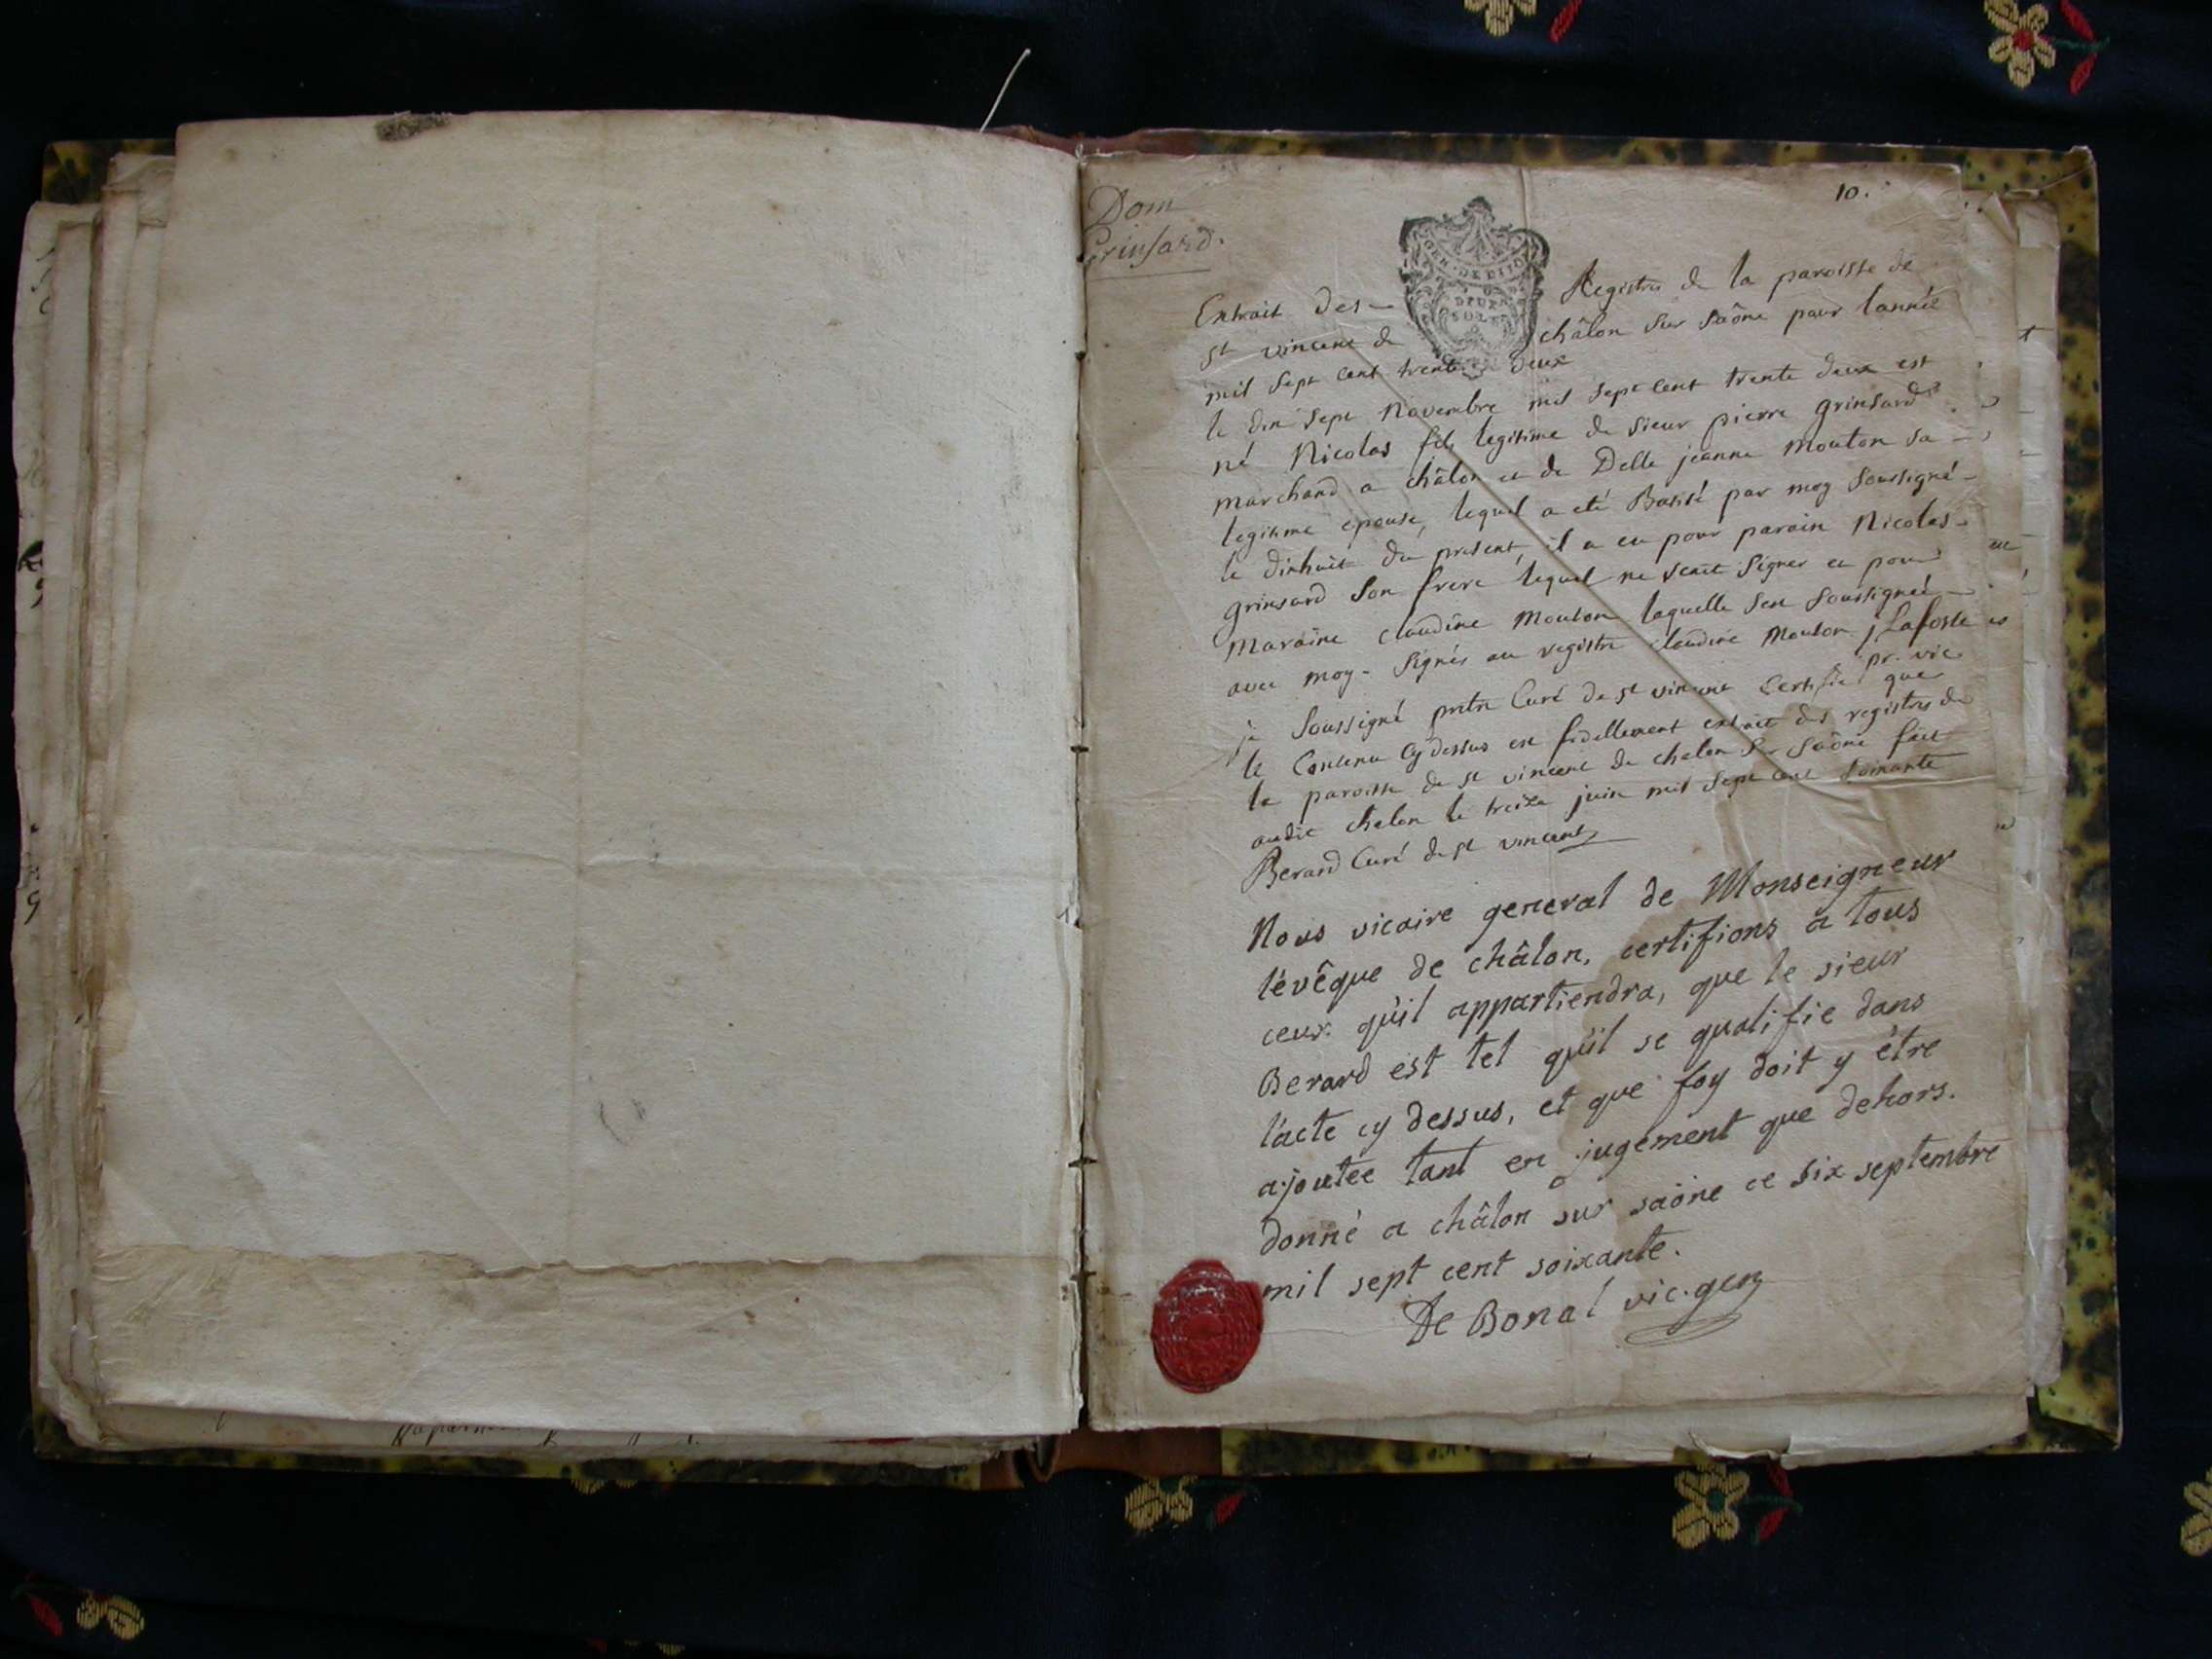 Dom
Grinsard.
10.
GEN. DE DIIO
DEUX
SOLS
Extrait des Registres de la paroisse de
st vincent de châlon sur saône pour l'année
mil sept cent trente deux
le dix sept Novembre mil sept cent trente deux est
né Nicolas fils legitime de sieur pierre grinsard
marchand a châlon et de Delle jeanne Mouton sa
legitime epouse, lequel a eté Batisé par moy soussigné
le dixhuit du present, il a eu pour parain Nicolas
grinsard son frere lequel ne scait signer et pour
maraine claudine Mouton laquelle s'est soussignée
avec moy. signés au registre claudine Mouton, j Lafosse
pr. vic
je soussigné pretre Curé de st vincent Certifie que
le Contenu cy dessus est fidellement extrait des registres de
la paroisse de st vincent de chalon sur saône fait
audit chalon le treize juin mil sept cent soixante
Berard Curé de st vincent
Nous vicaire general de Monseigneur
lévêque de châlon, certifions a tous
ceux qu'il appartiendra, que le sieur
Berard est tel qu'il se qualifie dans
l'acte cy dessus, et que foy doit y être
ajoutée tant en jugement que dehors.
donné a châlon sur saône ce six septembre
mil sept cent soixante.
De Bonal vic. gen